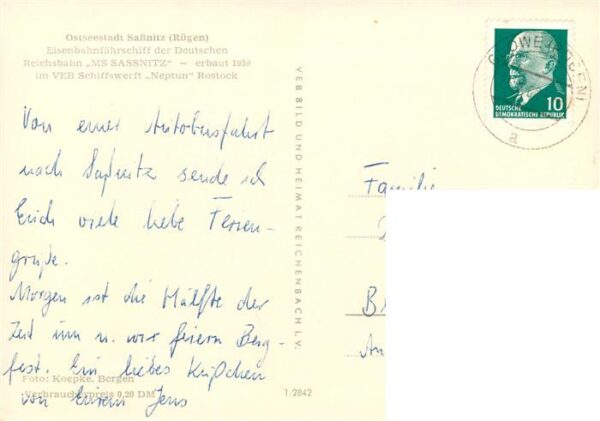 Ostseestadt Saßnitz (Rügen)
Eisenbahnfährschiff der Deutschen
Reichsbahn „MS SASSNITZ" — erbaut 1959
im VEB Schiffswerft „Neptun" Rostock
Von einer Autobusfahrt
nach Saßnitz sende ich
Euch viele liebe Ferien-
grüße.
Morgen ist die Hälfte der
Zeit um u. wir feiern Berg-
fest. Ein liebes Küßchen
von Eurem Jens
Foto: Koepke, Bergen
Verbraucherpreis 0,20 DM
VEB BILD UND HEIMAT REICHENBACH i. V.
1.2842
10
DEUTSCHE
DEMOKRATISCHE REPUBLIK
GLOWE (RÜGEN)
a
Familie
B
An